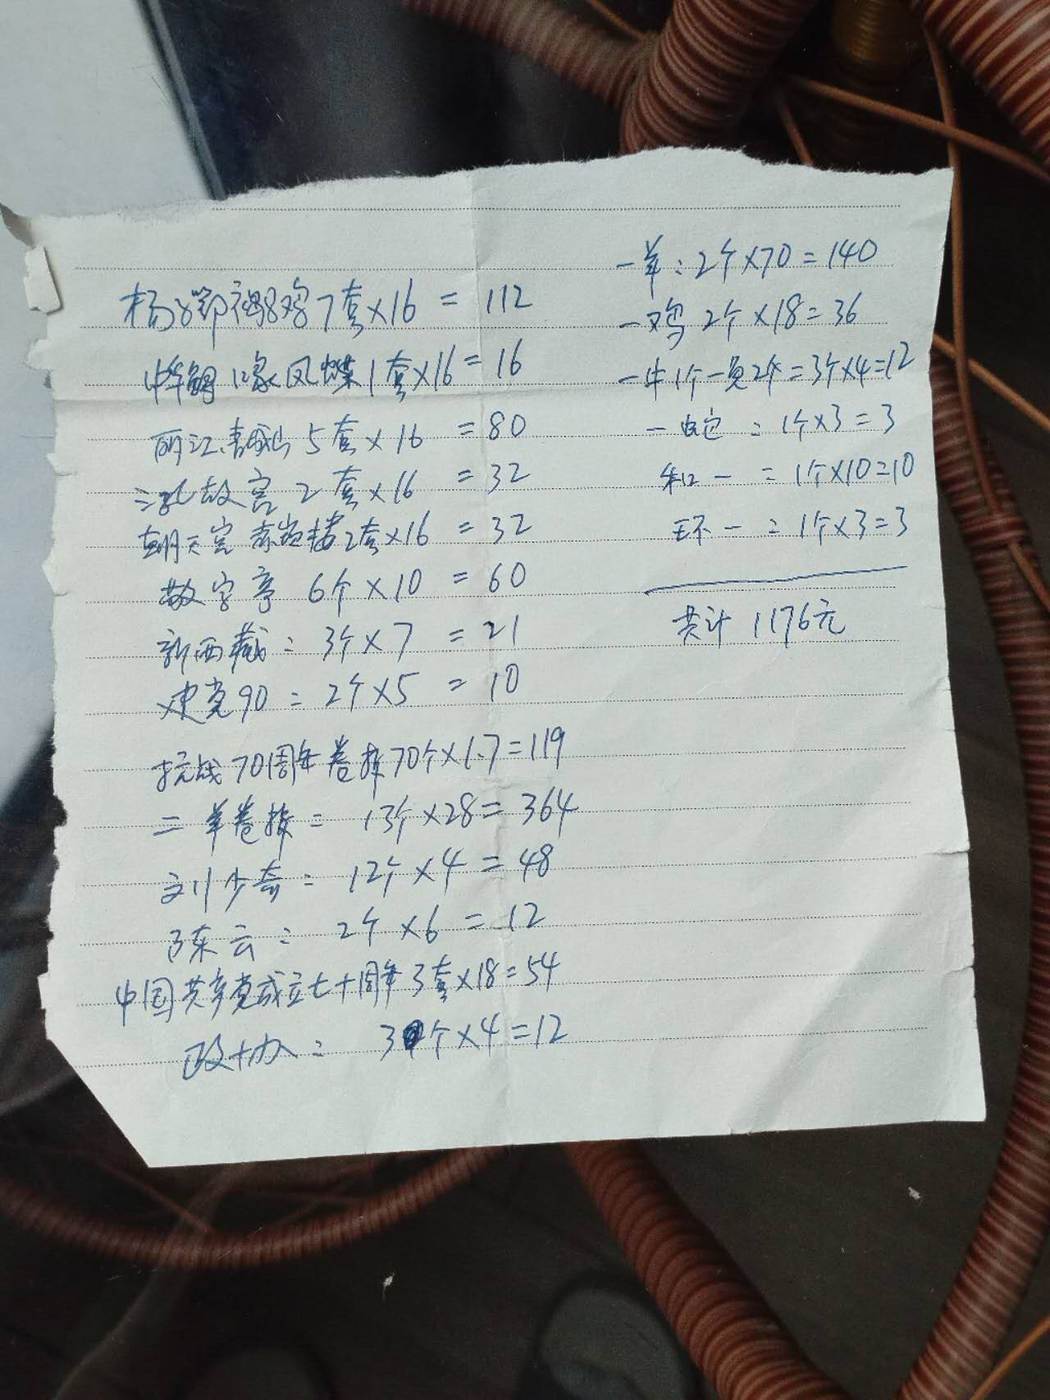 杨子鄂褐马鸡7套×16=112
中华鲟 喙凤蝶1套×16=16
丽江 青城山5套×16=80
三孔故宫2套×16=32
朝天宫 赤嵌楼2套×16=32
数字 6个×10=60
新西藏:3个×7=21
建党90:2个×5=10
抗战70周年卷拆70个×1.7=119
二羊卷拆=13个×28=364
刘少奇:12个×4=48
陈云:2个×6=12
中国共产党成立七十周年3套×18=54
政协:3个×4=12
一羊:2个×70=140
一鸡2个×18=36
一牛1个一兔2个=3个×4=12
一蛇:1个×3=3
和一=1个×10=10
环一=1个×3=3
共计1176元